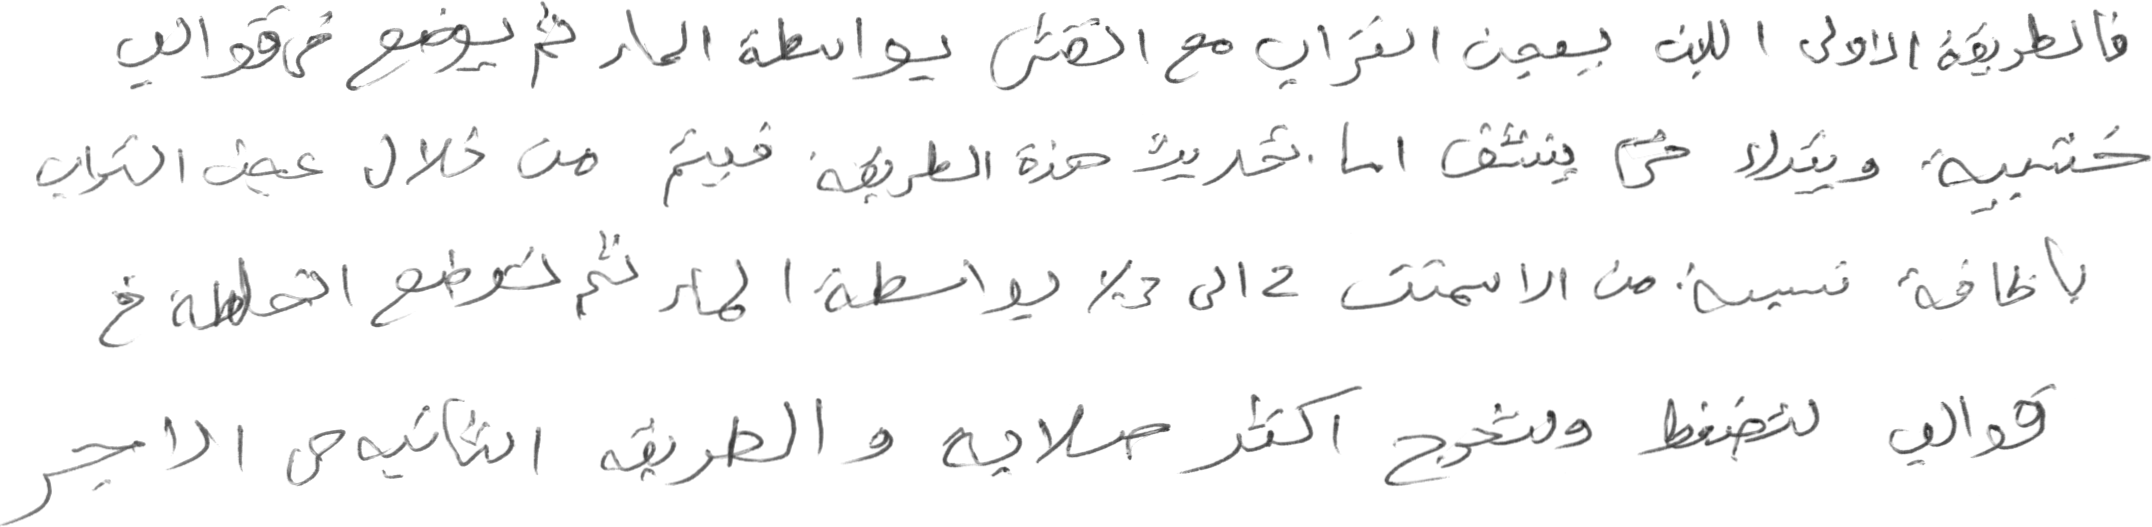 فالطريقة الاولى اللبن يعجن التراب مع القش بواسطة الماء ثم يوضع في قوالب
خشبية ويترك حتى ينشف اما تحديث هذة الطريقة فيتم من خلال عجن التراب
باظافة نسبة من الاسمنت 2 الى 3% بواسطة الماء ثم توضع الخلطة في
قوالب لتضغط ولتخرج اكثر صلابه والطريقه الثانيه هي الاجر